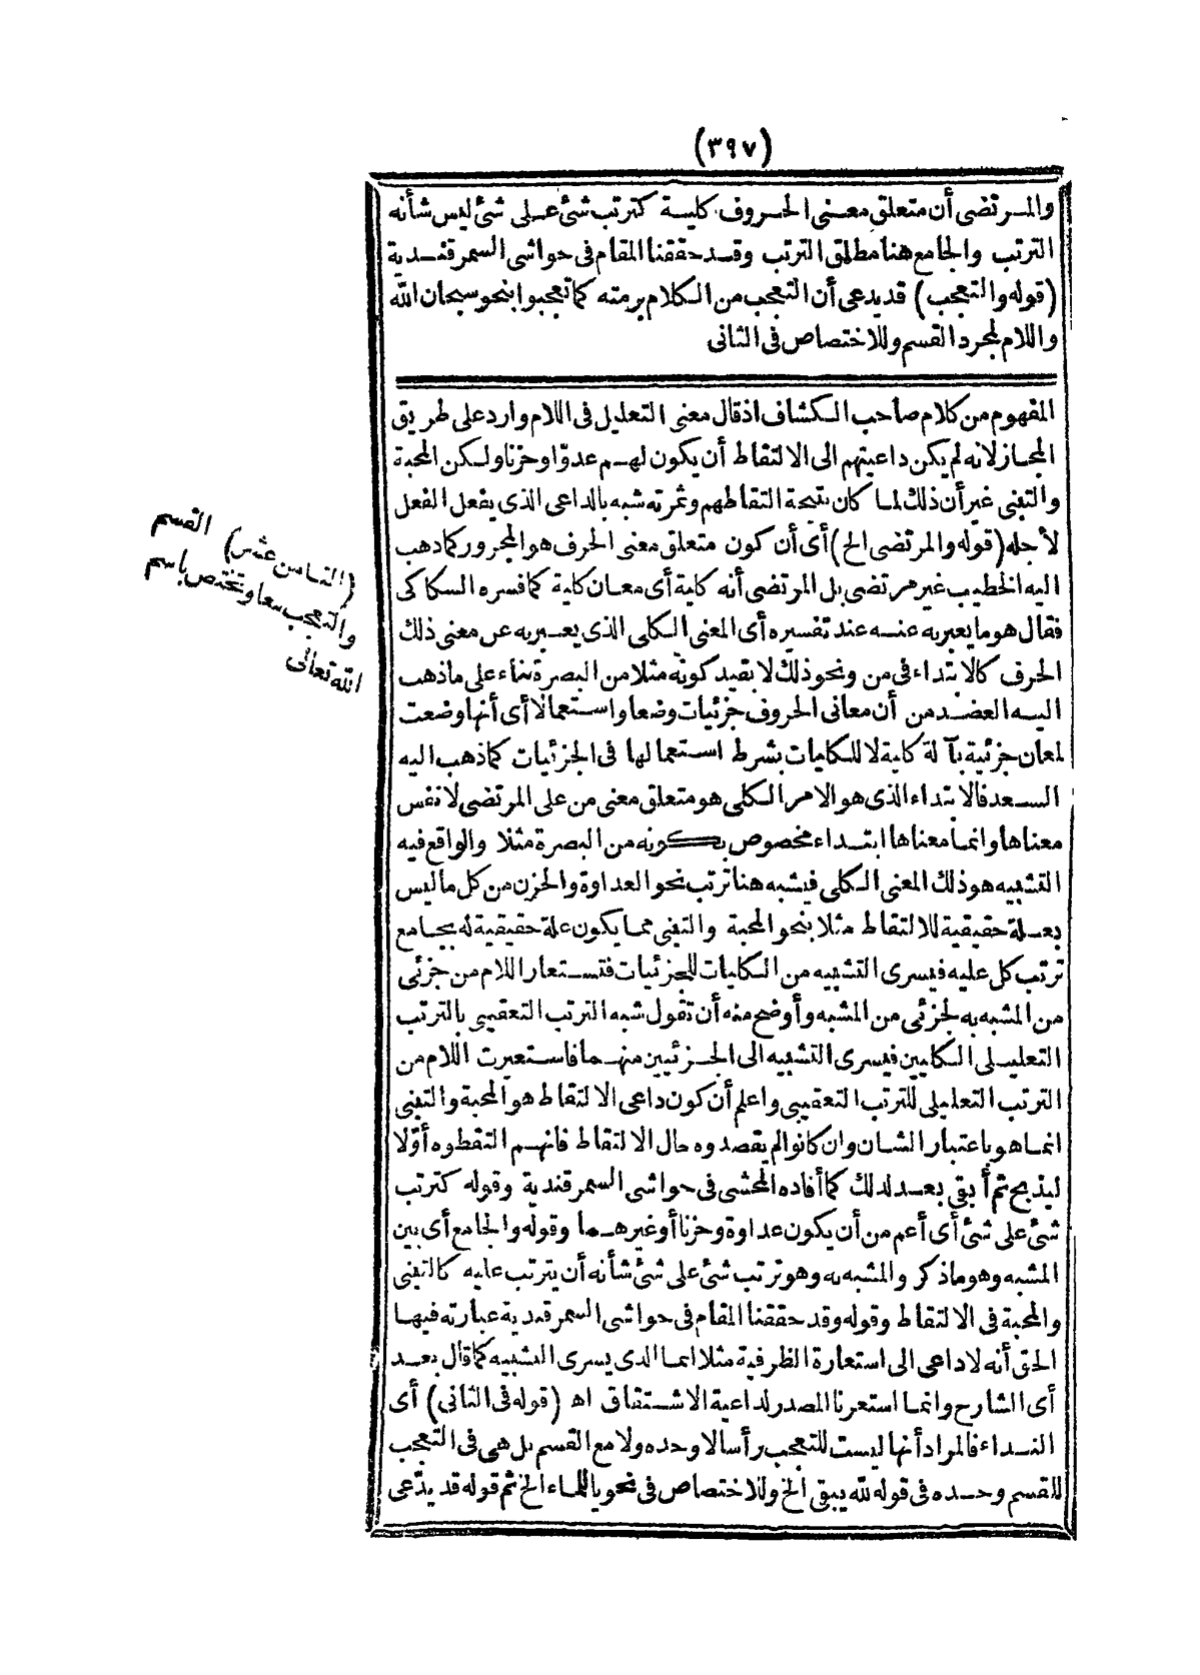 (٣٩٧)
والمرتضى أن متعلق معنى الحروف كلية كترتب شئ على شئ ليس شأنه
الترتب والجامع هنا مطلق الترتب وقد حققنا المقام فى حواشى السمرقندية
(قوله والتعجب) قد يدعى أن التعجب من الكلام برمته كما تعجبوا بنحو سبحان الله
واللام لمجرد القسم وللاختصاص فى الثانى
المفهوم من كلام صاحب الكشاف اذ قال معنى التعليل فى اللام وارد على طريق
المجاز لانه لم يكن داعيتهم الى الالتقاط أن يكون لهم عدوّا وحزنا ولكن المحبة
والتبنى غير أن ذلك لما كان نتيجة التقاطهم وثمرته شبه بالداعى الذى يفعل الفعل
لأجله (قوله والمرتضى الخ) أى أن كون متعلق معنى الحرف هو المجرور كما ذهب
اليه الخطيب غير مرتضى بل المرتضى أنه كلية أى معان كلية كما فسره السكاكى
فقال هو ما يعبر به عنه عند تفسيره أى المعنى الكلى الذى يعبر به عن معنى ذلك
الحرف كالابتداء فى من ونحو ذلك لا بقيد كونه مثلا من البصرة بناء على ما ذهب
اليه العضد من أن معانى الحروف جزئيات وضعا واستعمالا أى أنها وضعت
لمعان جزئية بآلة كلية لا للكليات بشرط استعمالها فى الجزئيات كما ذهب اليه
السعد فالابتداء الذى هو الامر الكلى هو متعلق معنى من على المرتضى لا نفس
معناها وانما معناها ابتداء مخصوص بكونه من البصرة مثلا والواقع فيه
التشبيه هو ذلك المعنى الكلى فيشبه هنا ترتب نحو العداوة والحزن من كل ما ليس
بعلة حقيقية للالتقاط مثلا بنحو المحبة والتبنى مما يكون علة حقيقية له بجامع
ترتب كل عليه فيسرى التشبيه من الكليات للجزئيات فتستعار اللام من جزئى
من المشبه به لجزئى من المشبه وأوضح منه أن تقول شبه الترتب التعقيبى بالترتب
التعليلى الكليين فيسرى التشبيه الى الجزئيين منهما فاستعيرت اللام من
الترتب التعليلى للترتب التعقيبى واعلم أن كون داعى الالتقاط هو المحبة والتبنى
انما هو باعتبار الشان وان كانوا لم يقصدوه حال الالتقاط فانهم التقطوه أوّلا
ليذبح ثم أبقى بعد لذلك كما أفاده المحشى فى حواشى السمرقندية وقوله كترتب
شئ على شئ أى أعم من أن يكون عداوة وحزنا أو غيرهما وقوله والجامع أى بين
المشبه وهو ما ذكر والمشبه به وهو ترتب شئ على شئ شأنه أن يترتب عليه كالتبنى
والمحبة فى الالتقاط وقوله وقد حققنا المقام فى حواشى السمرقندية عبارته فيها
الحق أنه لا داعى الى استعارة الظرفية مثلا انما الذى يسرى التشبيه كما قال بعد
أى الشارح وانما استعرنا المصدر لداعية الاشتقاق اه (قوله فى الثانى) أى
النداء فالمراد أنها ليست للتعجب رأسا لا وحده ولا مع القسم بل هى فى التعجب
للقسم وحده فى قوله لله يبقى الخ وللاختصاص فى نحو يا للماء الخ ثم قوله قد يدّعى
(الثامن عشر) القسم
والتعجب معا وتختص باسم
الله تعالى